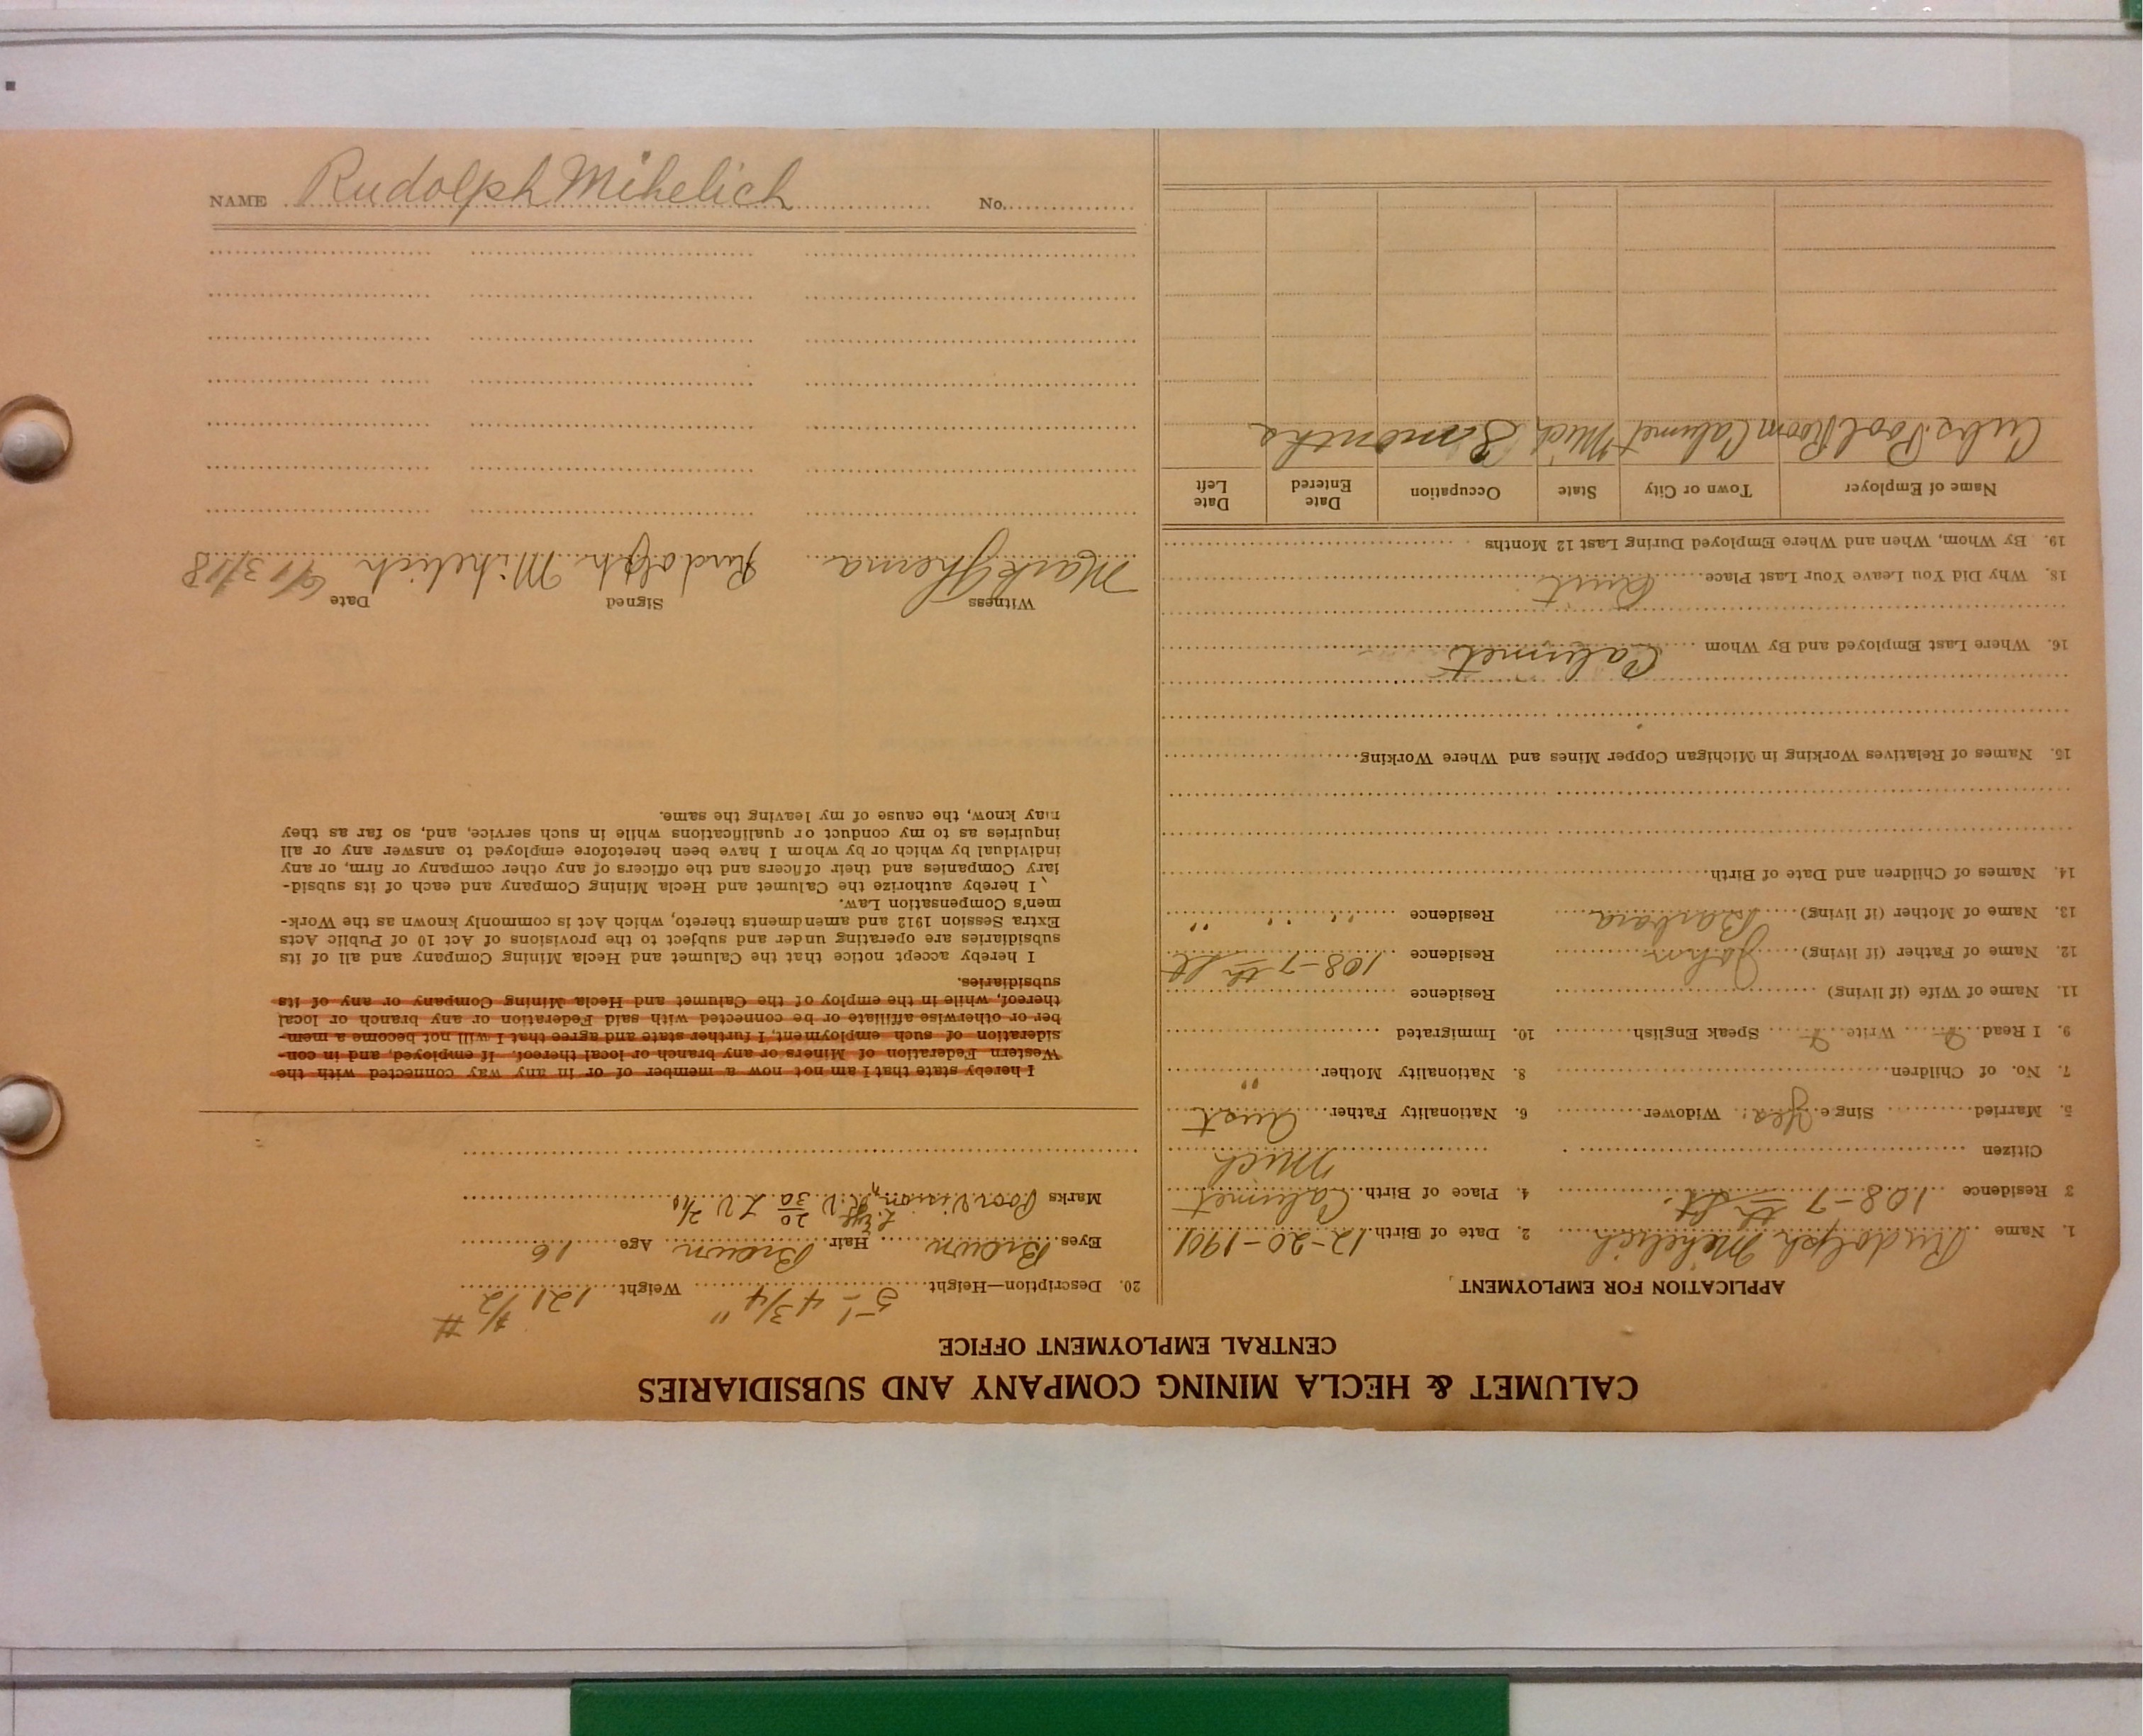 CALUMET & HECLA MINING COMPANY AND SUBSIDIARIES
CENTRAL EMPLOYMENT OFFICE
APPLICATION FOR EMPLOYMENT
1. Name Rudolph Mihelich 2. Date of Birth 12-20-1901
3 Residence 108-7th St. 4. Place of Birth Calumet
Mich
Citizen
5. Married Single Yes. Widower 6. Nationality Father Aust
7. No. of Children 8. Nationality Mother "
9. I Read Write Speak English 10. Immigrated
11. Name of Wife (if living) Residence
12. Name of Father (if living) John Residence 108-7th St
13. Name of Mother (if living) Barbara Residence " " "
14. Names of Children and Date of Birth
15. Names of Relatives Working in Michigan Copper Mines and Where Working
16. Where Last Employed and By Whom
Calumet
18. Why Did You Leave Your Last Place Quit
19. By Whom, When and Where Employed During Last 12 Months
Name of Employer Town or City State Occupation Date Entered Date Left
Cubs Pool Room Calumet Mich 3 months
20. Description—Height 5'-4 3/4" Weight 121 1/2 #
Eyes Brown Hair Brown Age 16
Marks Poor Vision L. Eye R.V. 20/30 L.V. 2/10
I hereby state that I am not now a member of or in any way connected with the
Western Federation of Miners or any branch or local thereof. If employed, and in con-
sideration of such employment, I further state and agree that I will not become a mem-
ber or otherwise affiliate or be connected with said Federation or any branch or local
thereof, while in the employ of the Calumet and Hecla Mining Company or any of its
subsidiaries.
I hereby accept notice that the Calumet and Hecla Mining Company and all of its
subsidiaries are operating under and subject to the provisions of Act 10 of Public Acts
Extra Session 1912 and amendments thereto, which Act is commonly known as the Work-
men's Compensation Law.
I hereby authorize the Calumet and Hecla Mining Company and each of its subsid-
iary Companies and their officers and the officers of any other company or firm, or any
individual by which or by whom I have been heretofore employed to answer any or all
inquiries as to my conduct or qualifications while in such service, and, so far as they
may know, the cause of my leaving the same.
Witness Signed Date
Mark Rudolph Mihelich 6/13/18
NAME Rudolph Mihelich No.